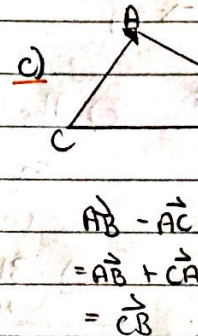 A
c)
C
AB⃗ - AC⃗
= AB⃗ + CA⃗
= CB⃗